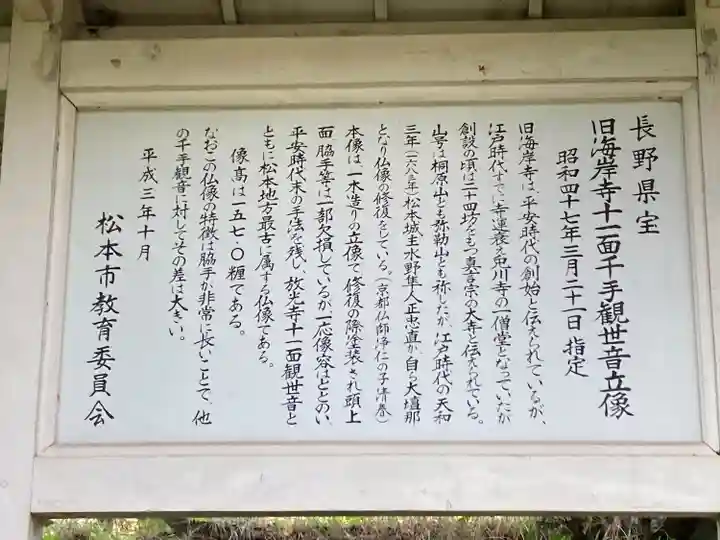 長野県宝
旧海岸寺十一面千手観世音立像
昭和四十七年三月二十一日 指定
旧海岸寺は、平安時代の創始と伝えられているが、
江戸時代すでに寺運衰え兎川寺の一僧堂となっていたが
創設の頃は二十四坊をもつ真言宗の大寺と伝えられている。
山号は桐原山とも弥勒山とも称したが、江戸時代の天和
三年(一六八三年)松本城主水野隼人正忠直が、自ら大壇那
となり仏像の修復をしている。(京都仏師浄仁の子清春)
本像は、一木造りの立像で修復の際塗装され頭上
面、脇手等は一部欠損しているが一応像容はととのい、
平安時代末の手法を残し、放光寺十一面観世音と
ともに松本地方最古に属する仏像である。
像高は一五七・〇糎である。
なおこの仏像の特徴は脇手が非常に長いことで、他
の千手観音に対してその差は大きい。
平成三年十月
松本市教育委員会